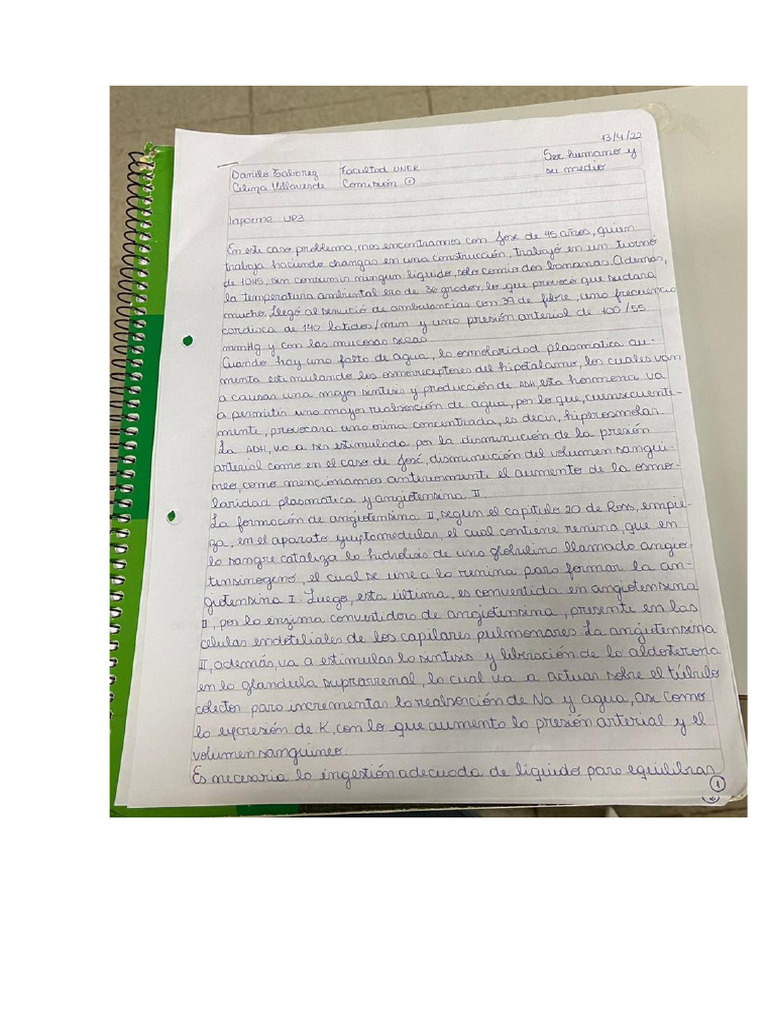 13/4/22
Danilo Taborez Facultad UNER Ser humano y
Celina Villaverde Comisión 1 su medio
Informe UP3
En este caso problema, nos encontramos con José de 45 años, quien
trabaja haciendo changas en una construcción, trabajó en un turno
de 10HS, sin consumir ningun líquido, solo comió dos bananas. Ademas,
la temperatura ambiental era de 36 grados, lo que provocó que sudara
mucho. Llegó al servicio de ambulancias con 39 de fibre, una frecuencia
cardiaca de 140 latidos/mim y una presión arterial de 100/55
mmHg y con las mucosas secas.
Cuando hay una falta de agua, la osmolaridad plasmatica au-
menta estimulando los osmorreceptores del hipotalamo, los cuales van
a causar una mayor sintesis y producción de ADH, esta hormona va
a permitir una mayor reabsorción de agua, por lo que, cuensecuenti-
mente, provocara una orina concentrada, es decir, hiperosmolar.
La ADH, va a ser estimulada por la disminución de la presión
arterial como en el caso de José, disminución del volumen sangui-
neo, como mencionamos anteriormente el aumento de la osmo-
laridad plasmática y angiotensina II.
La formación de angiotensina II, según el capitulo 20 de Ross, empie-
za, en el aparato yuxtamedular, el cual contiene renina, que en
la sangre cataliza la hidrolisis de una globulina llamado angio-
tensinogeno, el cual se une a la renina para formar la an-
giotensina I. Luego, esta última, es convertida en angiotensina
II, por la enzima convertidora de angiotensina, presente en las
celulas endoteliales de los capilares pulmonares. La angiotensina
II, además, va a estimular la sintesis y liberación de la aldosterona
en la glandula suprarrenal, la cual va a actuar sobre el túbulo
colector para incrementar la reabsorción de Na y agua, asi como
la excresión de K, con lo que aumenta la presión arterial y el
volumen sanguineo.
Es necesaria la ingestión adecuada de líquido para equilibrar
1